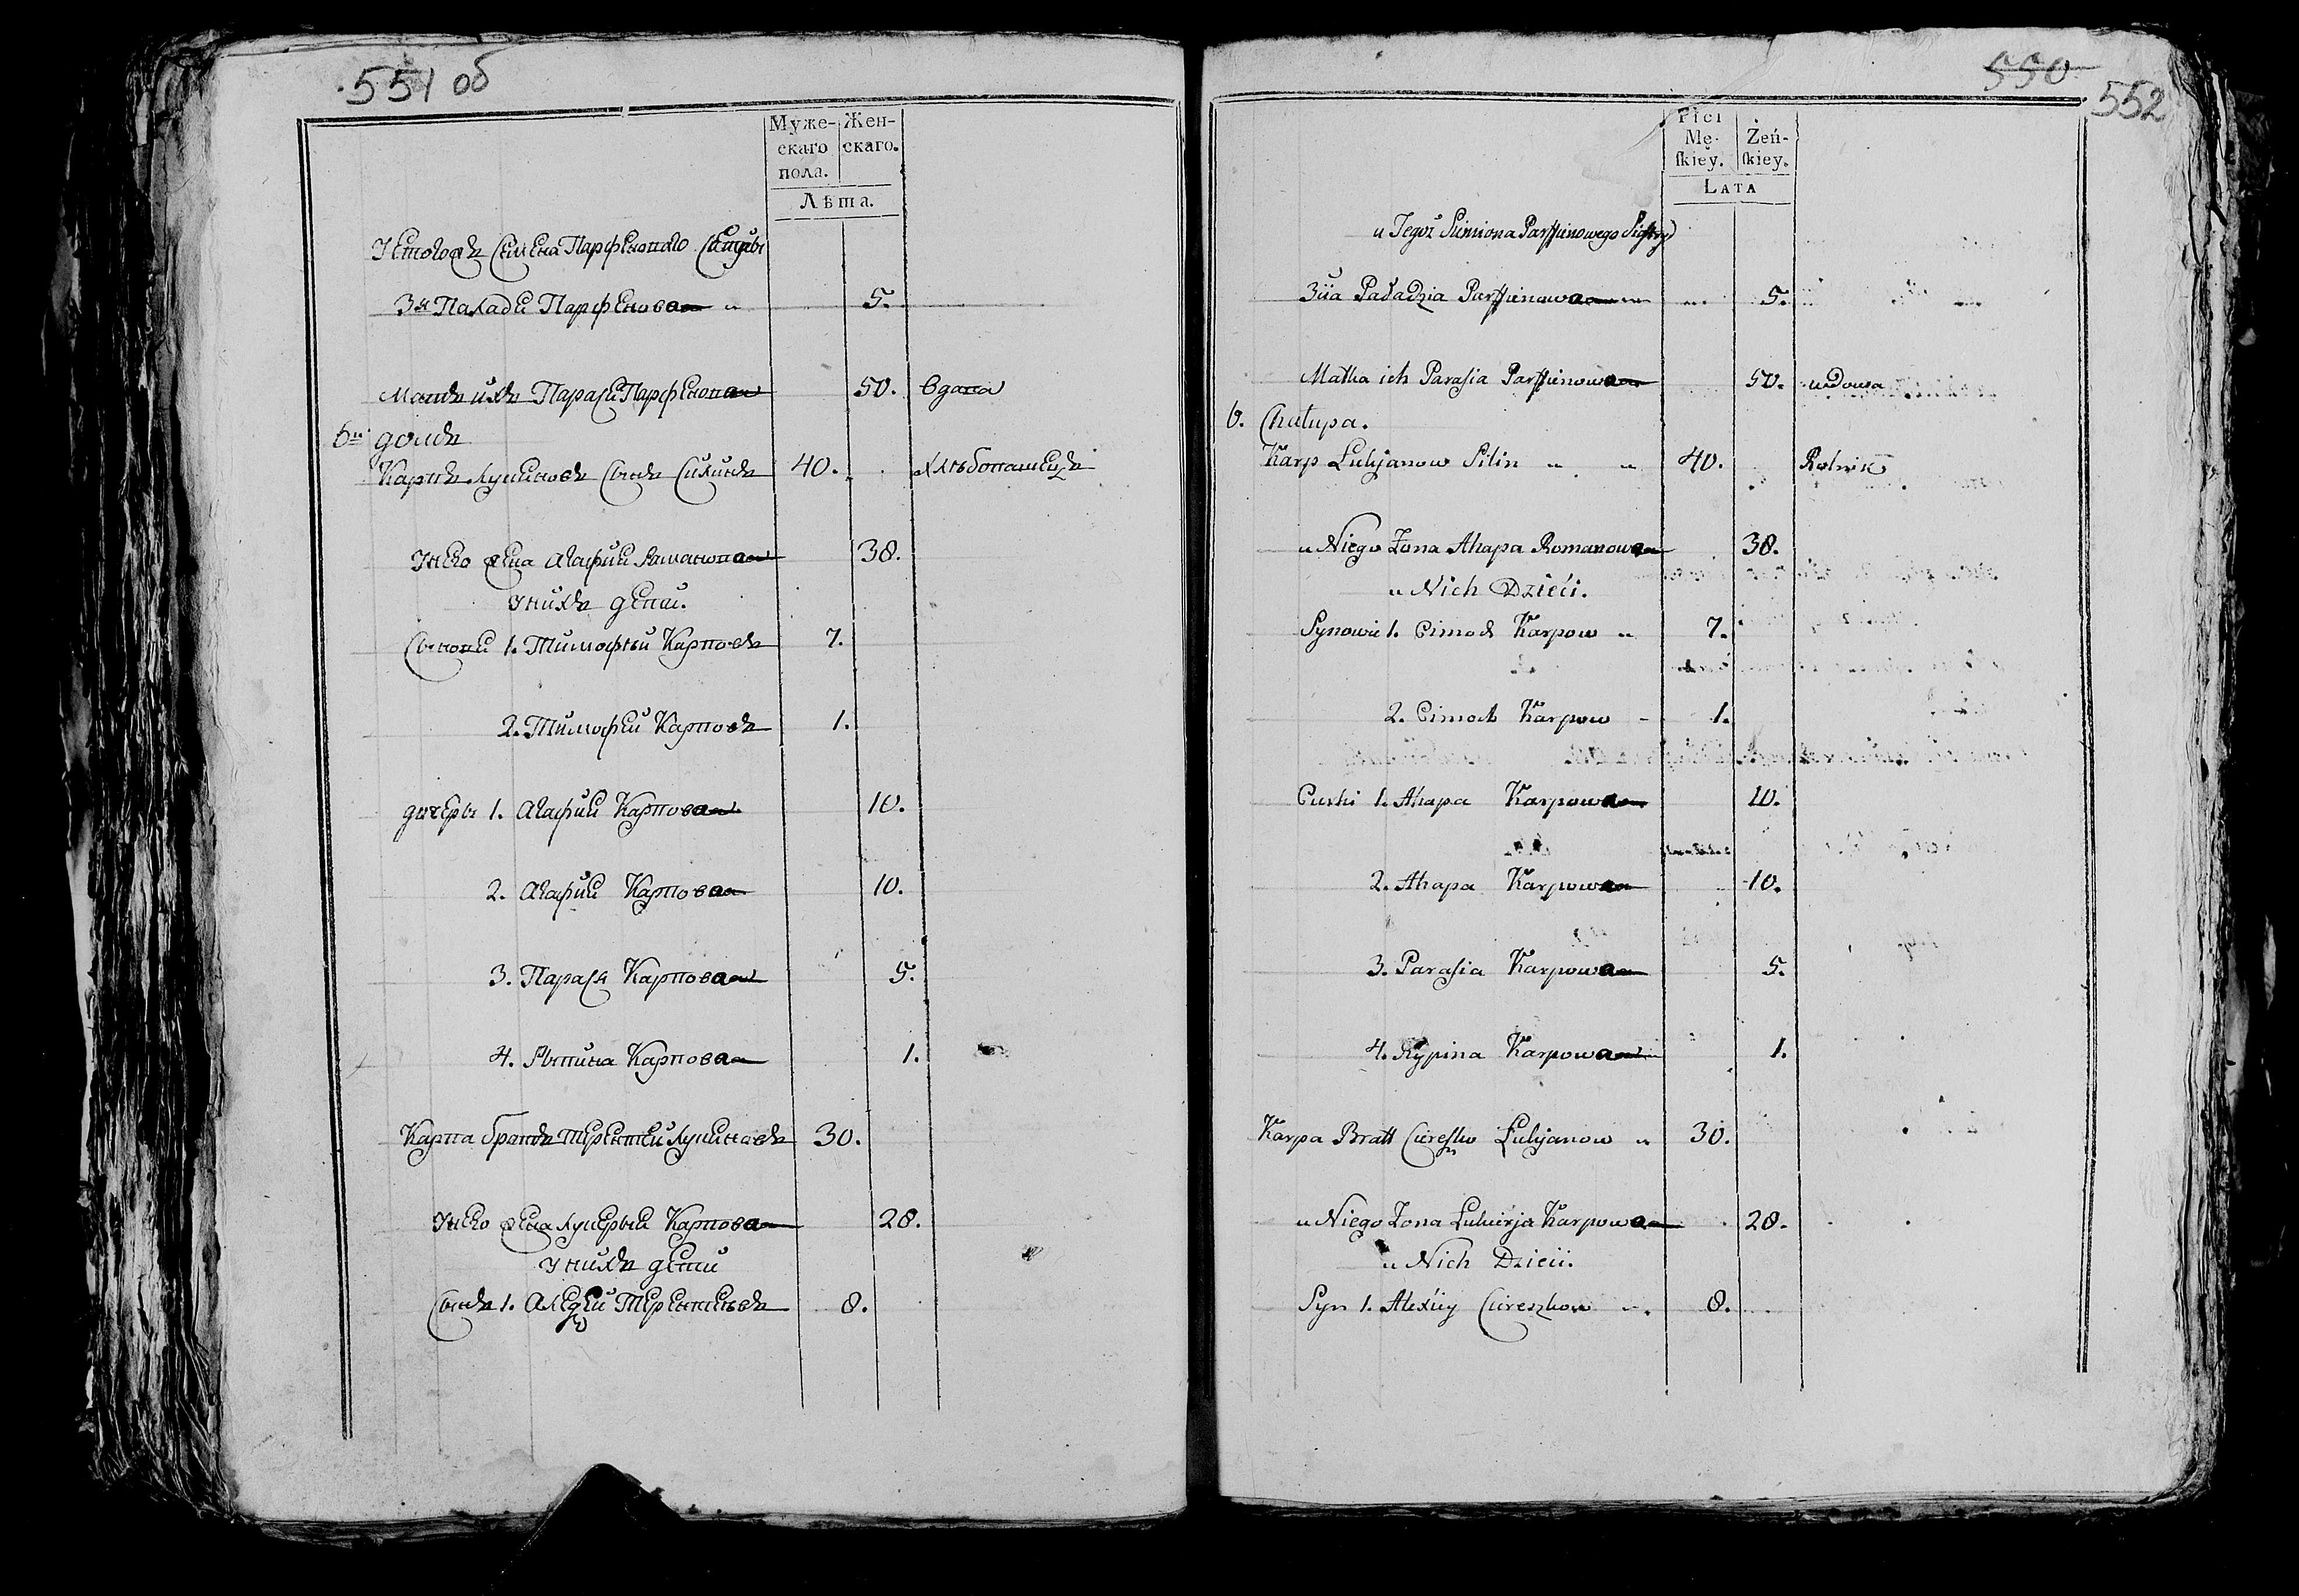 551 об
Муже-
скаго
пола.
Жен-
скаго.
Лѣта.
Семена Парфенового Сестры
3я Палади Парфенова 5.
Мать ихъ Параси Парфенова 50. вдова
6й домъ
Карпъ Лукиновъ сынъ Силинъ 40. хлѣбопашецъ
У него жена Агафии Романова 38.
У нихъ дети.
Сынови 1. Тимофѣй Карповъ 7.
2. Тимофей Карповъ 1.
дочеры 1. Агафии Карпова 10.
2. Агафии Карпова 10.
3. Парася Карпова 5.
4. Рыпина Карпова 1.
Карпа братъ Терентеи Лукиновъ 30.
У него жена Лукерыи Карпова 28.
У нихъ дети
Сынъ 1. Терентевъ 8.
550
552
Płci
Mę-
ſkiey.
Żeń-
ſkiey.
Lata
u Tegoż Simiona Parffienowego Siostry
3iia Paładzia Parffienowa 5.
Matka ich Parasia Parffienowa 50. wdowa
6. Chałupa.
Karp Lukjanow Silin 40. Rolnik
u Niego Żona Ahapa Romanowa 38.
u Nich Dzieći.
Synowie 1. Cimoch Karpow 7.
2. Cimoch Karpow 1.
Curki 1. Ahapa Karpowa 10.
2. Ahapa Karpowa 10.
3. Parasia Karpowa 5.
4. Rypina Karpowa 1.
Karpa Bratt Cireszko Lukjanow 30.
u Niego Żona Lukierja Karpowa 28.
u Nich Dzieći.
Syn 1. Alexiey Cireszkow 8.